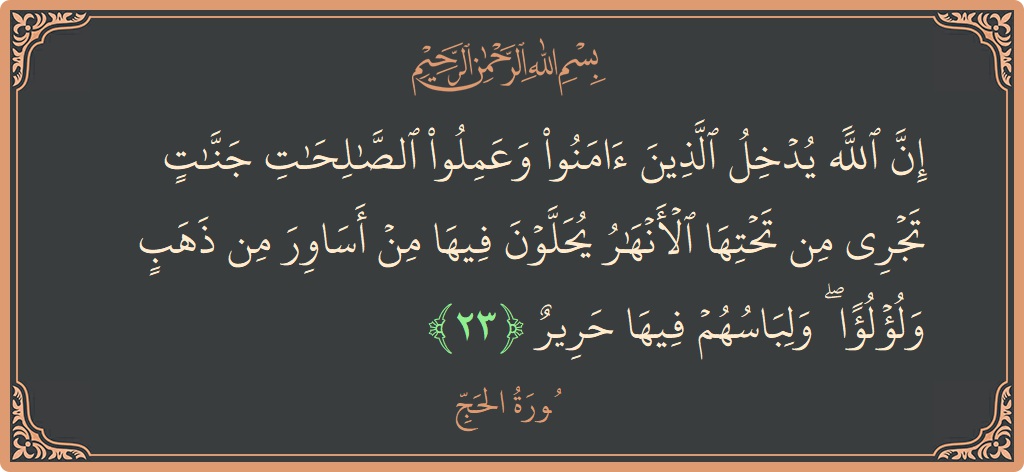 بِسْمِ اللَّهِ الرَّحْمَٰنِ الرَّحِيمِ
إِنَّ ٱللَّهَ يُدۡخِلُ ٱلَّذِينَ ءَامَنُواْ وَعَمِلُواْ ٱلصَّٰلِحَٰتِ جَنَّٰتٖ
تَجۡرِي مِن تَحۡتِهَا ٱلۡأَنۡهَٰرُ يُحَلَّوۡنَ فِيهَا مِنۡ أَسَاوِرَ مِن ذَهَبٖ
وَلُؤۡلُؤٗاۖ وَلِبَاسُهُمۡ فِيهَا حَرِيرٞ ﴿٢٣﴾
سُورَةُ الحَجِّ